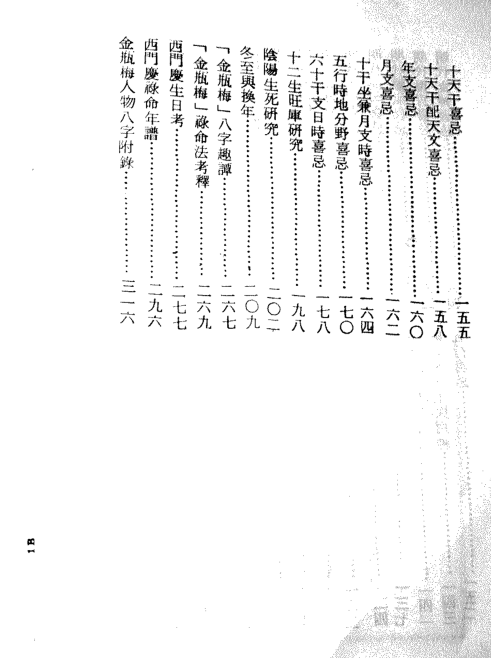 十天干喜忌………一五五
十天干配天文喜忌………一五八
年支喜忌………一六〇
月支喜忌………一六二
十干坐兼月支時喜忌………一六四
五行時地分野喜忌………一七〇
六十干支日時喜忌………一七八
十二生旺庫研究………一九八
陰陽生死研究………二〇二
冬至與換年………二〇九
「金瓶梅」八字趣譚………二六七
「金瓶梅」祿命法考釋………二六九
西門慶生日考………二七七
西門慶祿命年譜………二九六
金瓶梅人物八字附錄………三一六
1B